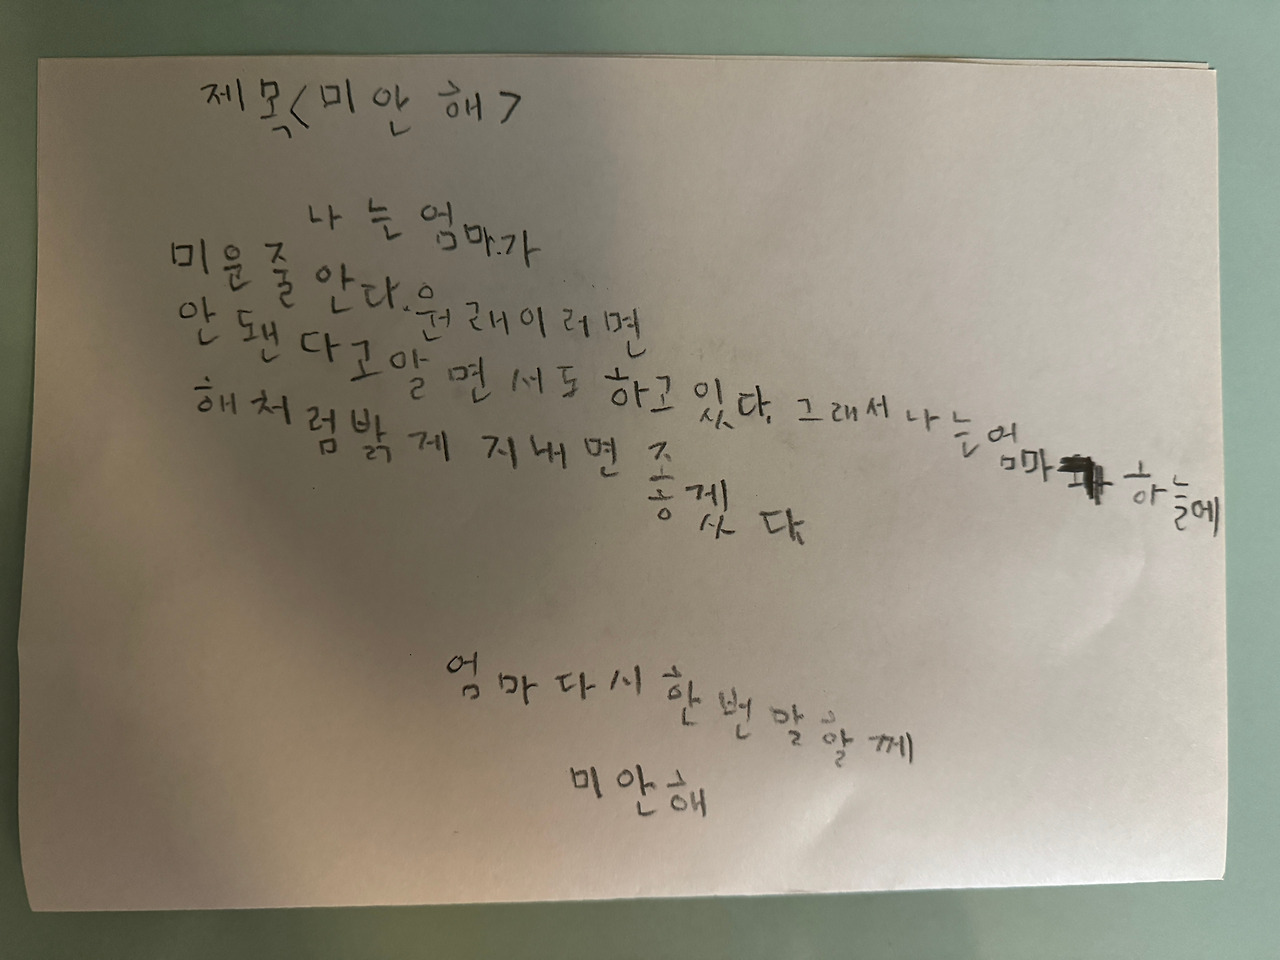 제목<미안해>
나는 엄마가
미운줄 안다.원래이러면
안됀다고알면서도 하고있다. 그래서 나는엄마 하늘에
해처럼밝게 지내면 좋겠다
엄마다시한번말할께
미안해